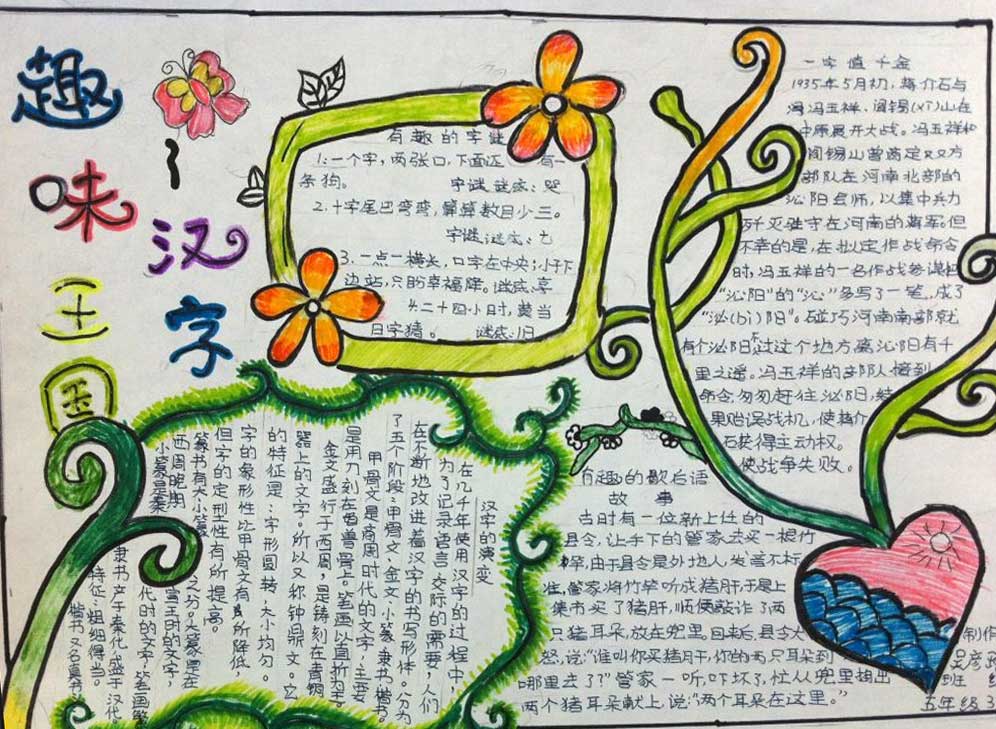 趣味汉字
王国
有趣的字谜
1.一个字，两张口，下面还 有一
条狗。 字谜谜底：哭
2.十字尾巴弯弯，算算数目少三。
字谜谜底：七
3.一点一横长，口字在中央；小子下
边站，只盼幸福降。谜底：享
4.二十四小时，黄当
日字猜。 谜底：旧
一字值千金
1935年5月初，蒋介石与
冯玉祥、阎锡(xī)山在
中原展开大战。冯玉祥和
阎锡山曾商定双方
部队在河南北部的
沁阳会师，以集中兵力
歼灭驻守在河南的蒋军。但
不幸的是，在拟定作战命令
时，冯玉祥的一名作战参谋把
“沁阳”的“沁”多写了一笔，成了
“泌(bì)阳”。碰巧河南南部就
有个泌阳，过这个地方，离沁阳有千
里之遥。冯玉祥的部队接到
命令，匆匆赶往泌阳，结
果贻误战机，使蒋介
石获得主动权。
使战争失败。
有趣的歇后语
故事
当时有一位新上任的
县令，让手下的管家去买一根竹
竿，由于县令是外地人，发音不标
准，管家将竹竿听成猪肝，于是上
集市买了猪肝，顺便敲诈了两
只猪耳朵，放在兜里。回来后，县令大
怒，说：“谁叫你买猪肝，你的两只耳朵到
哪里去了？”管家一听，吓坏了，忙从兜里掏出
两个猪耳朵献上，说：“两个耳朵在这里。”
汉字的演变
在几千年使用汉字的过程中，
为了记录语言、交际的需要，人们
在不断地改进着汉字的书写形体。分为
了五个阶段：甲骨文、金文、小篆、隶书、楷书。
甲骨文是商周时代的文字，主要
是用刀刻在兽骨上，笔画以直折居多。
金文盛行于西周，是铸刻在青铜
器上的文字。所以又称钟鼎文。它
的特征是：字形圆转，大小均匀。
字的象形性比甲骨文有所降低，
但字的定型性有所提高。
篆书有大小篆
之分。大篆是在
西周晚期
宣王时的文字，
小篆是秦
代时的文字，笔画繁
隶书产于秦代，盛于汉代。
特征：粗细得当。
楷书又名真书
制作
班级
五年级3